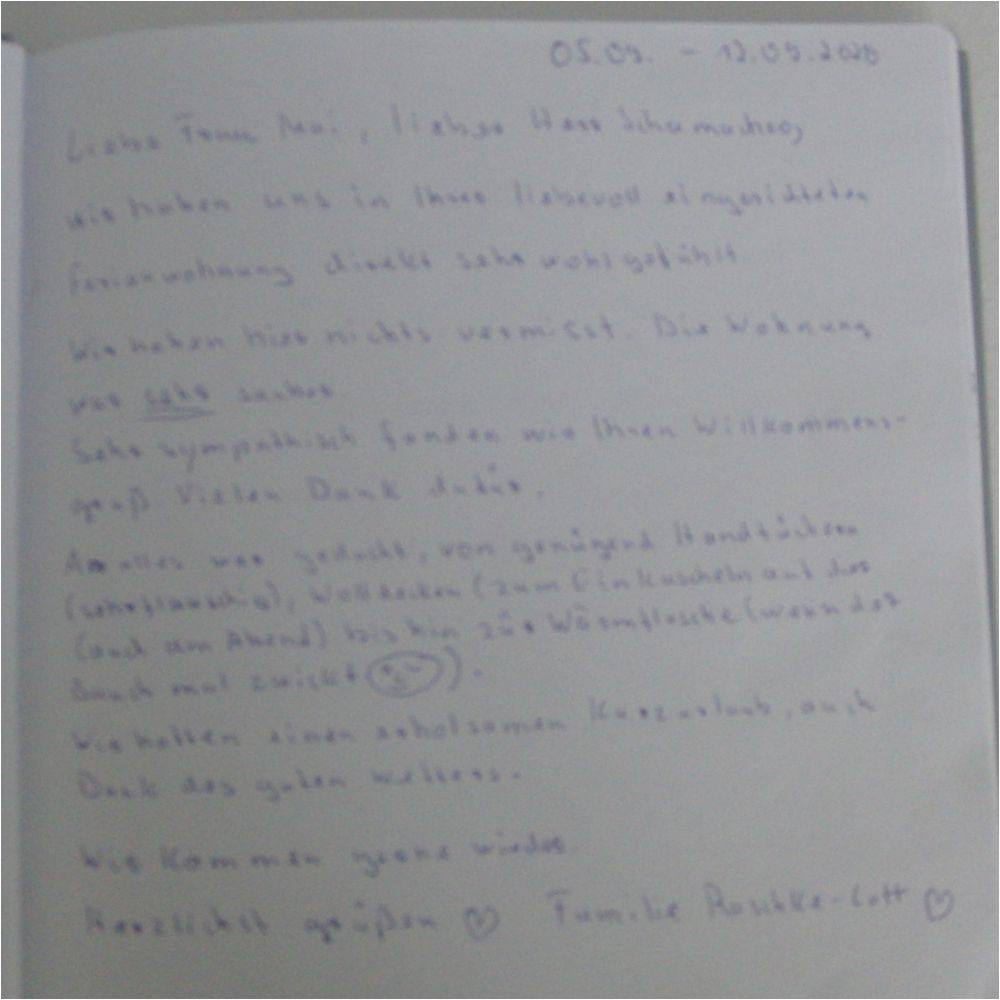 05.09. - 12.09.2020
Liebe Frau Mai, lieber Herr Schumacher,
wir haben uns in Ihrer liebevoll eingerichteten
Ferienwohnung direkt sehr wohl gefühlt.
Wir haben hier nichts vermisst. Die Wohnung
war sehr sauber.
Sehr sympathisch fanden wir Ihren Willkommens-
gruß. Vielen Dank dafür.
An alles war gedacht, von genügend Handtüchern
(sehr flauschig), Wolldecken (zum Einkuscheln auf der
(auch am Abend) bis hin zur Wärmflasche (wenn der
Bauch mal zwickt).
Wir hatten einen erholsamen Kurzurlaub, auch
Dank des guten Wetters.
Wir kommen gerne wieder.
Herzlichst grüßen ♡ Familie